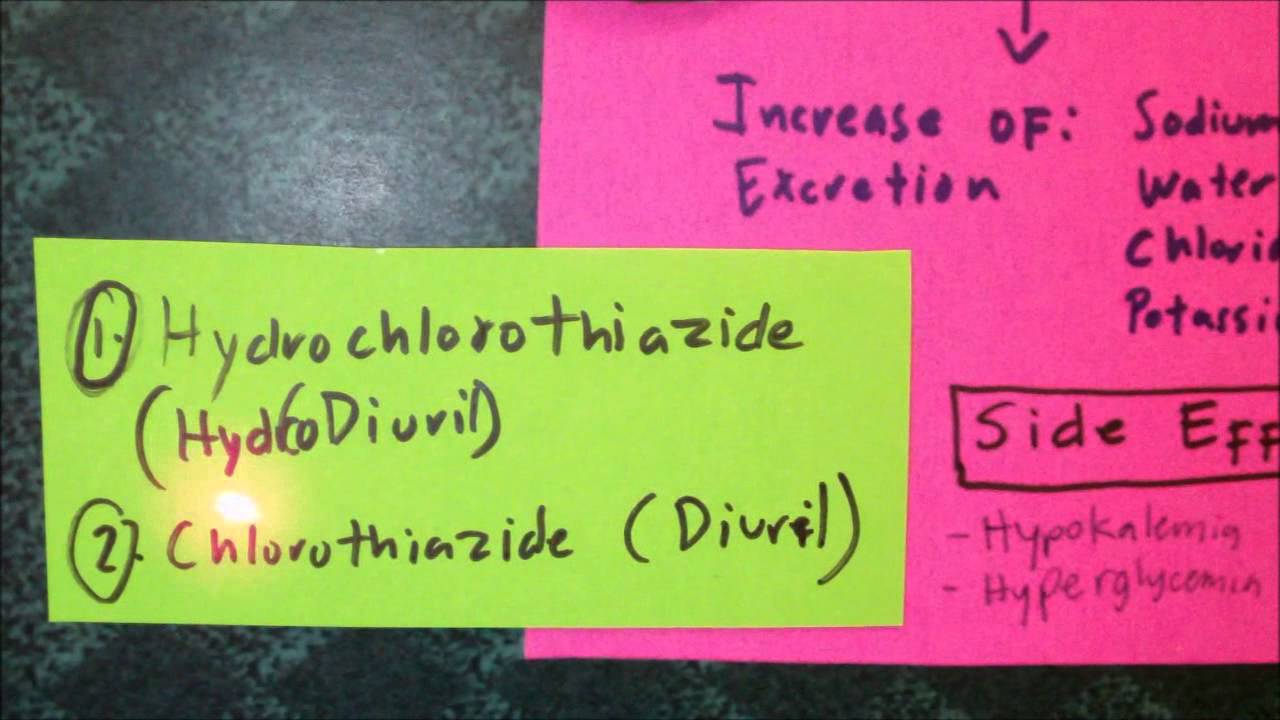 Increase OF: Sodium
Excretion Water
Chlorid
Potassi
1. Hydrochlorothiazide
(HydroDiuril)
2. Chlorothiazide (Diuril)
Side EFF
- Hypokalemia
- Hyperglycemia